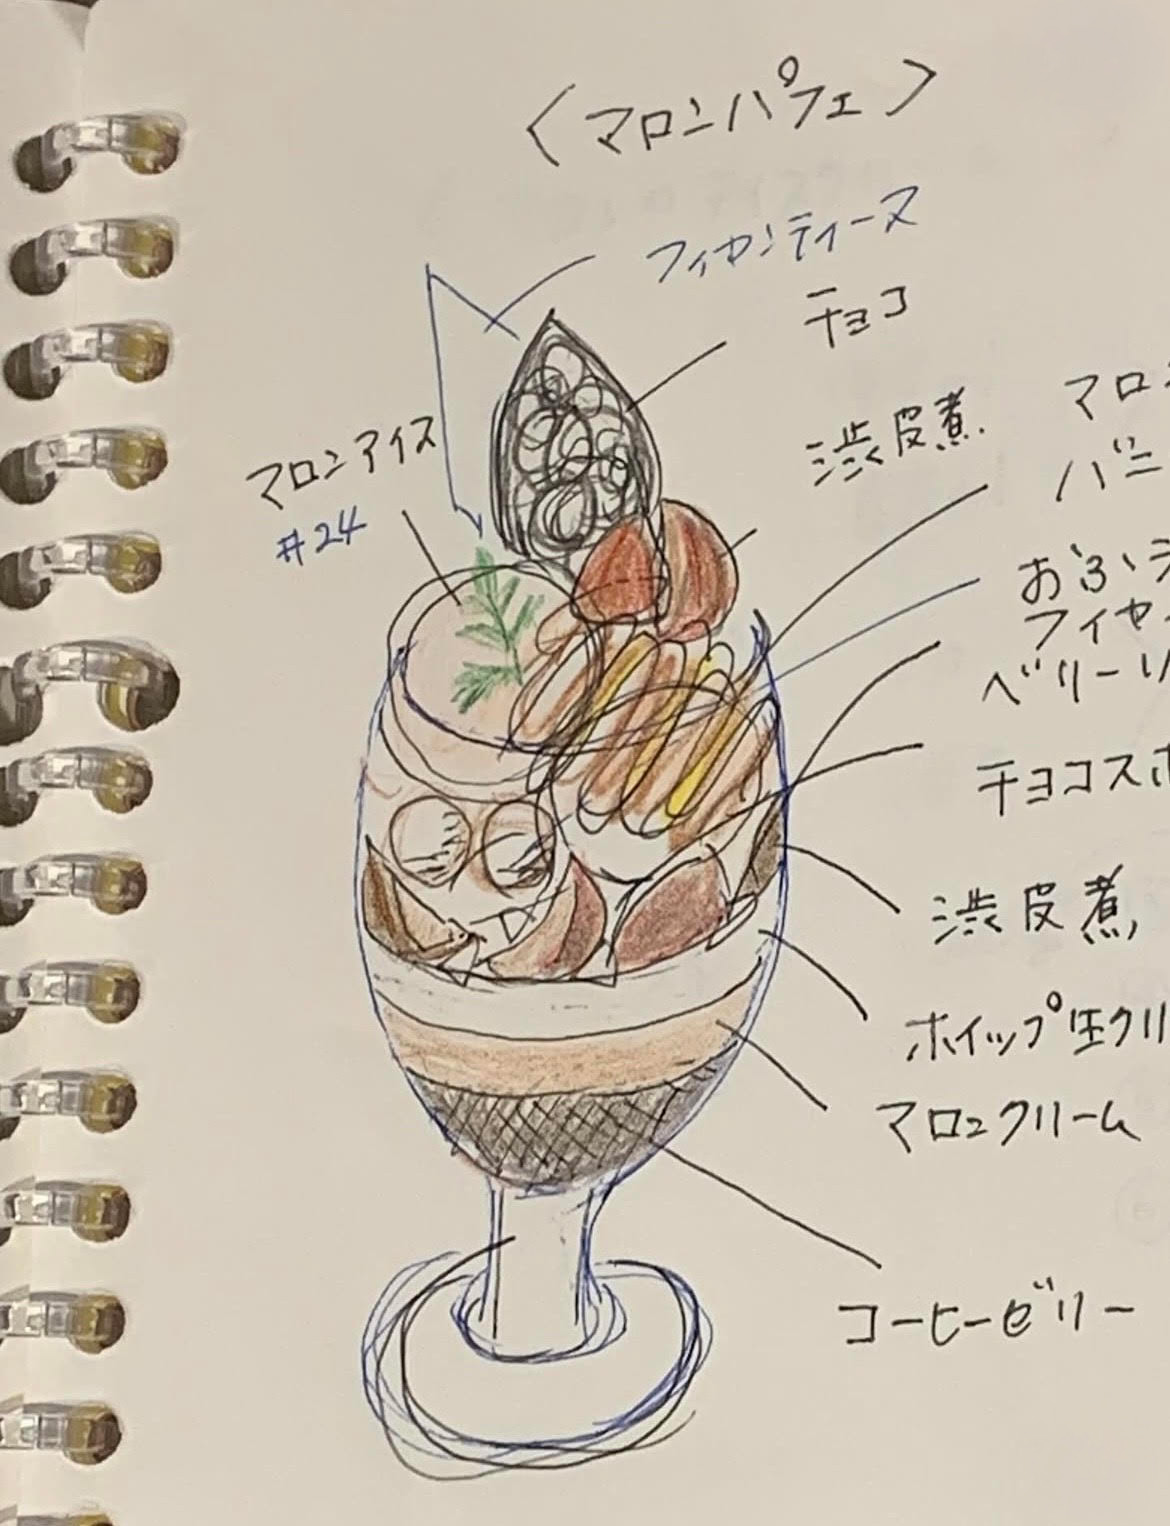 〈マロンパフェ〉
フィヤンティーヌ
チョコ
マロンアイス
#24
渋皮煮
マロン
バニ
おふ
フィヤ
ベリー
チョコスポ
渋皮煮
ホイップ生クリ
マロンクリーム
コーヒーゼリー